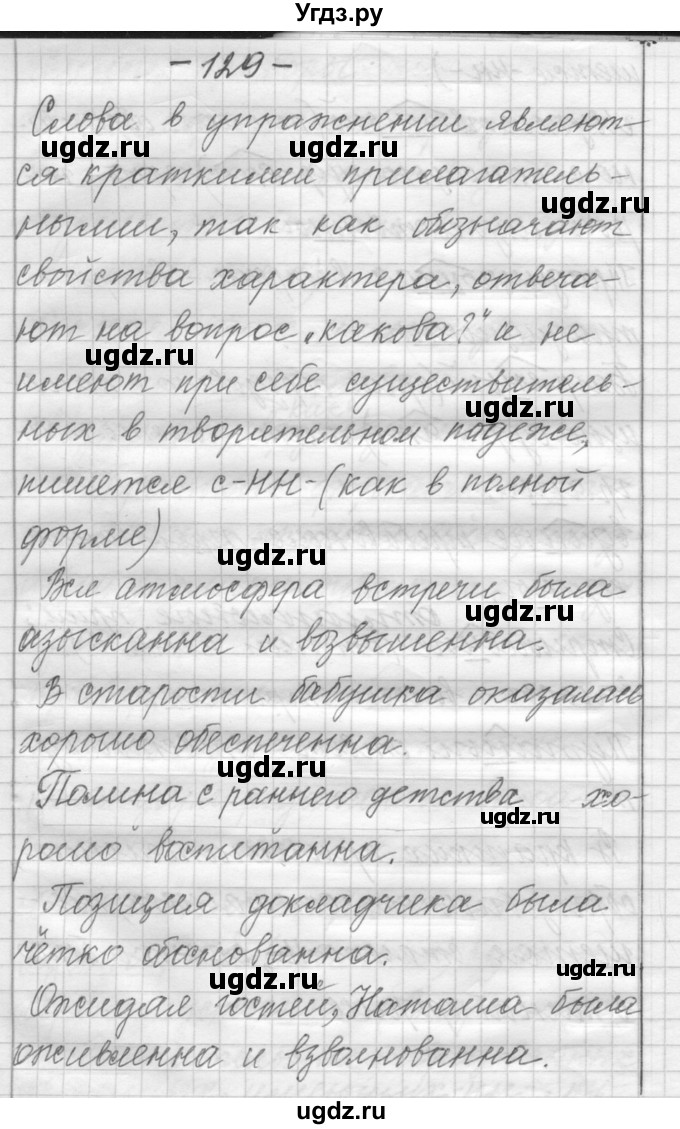 Угдз.ру
- 129 -
Слова в упражнении являют-
ugdz.ru ugdz.ru
ся краткими прилагатель-
ugdz.ru
ными, так как обозначают
свойства характера, отвеча-
ют на вопрос „какова?“ и не
ugdz.ru
имеют при себе существитель-
ugdz.ru
ных в творительном падеже,
пишется с -НН- (как в полной
форме)
ugdz.ru
Вся атмосфера встречи была
ugdz.ru
изысканна и возвышенна.
В старости бабушка оказалась
хорошо обеспеченна.
ugdz.ru
Полина с раннего детства хо-
ugdz.ru
рошо воспитанна.
Позиция докладчика была
чётко обоснованна.
ugdz.ru
ugdz.ru
Ожидая гостей, Наташа была
оживленна и взволнованна.
ugdz.ru